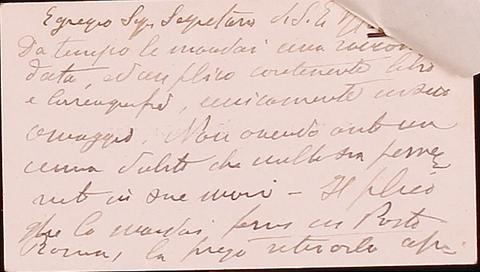 Egregio Sig. Segretario di S. E.
Da tempo le mandai una raccoman
data, ed un plico contenente libro
e , unicamente in suo
omaggio. Non avendo avuto un
cenno dubito che nulla sia perve-
nuto in sue mani – Il plico
che la mandai fermo in Posta
Roma, la prego ritirarlo